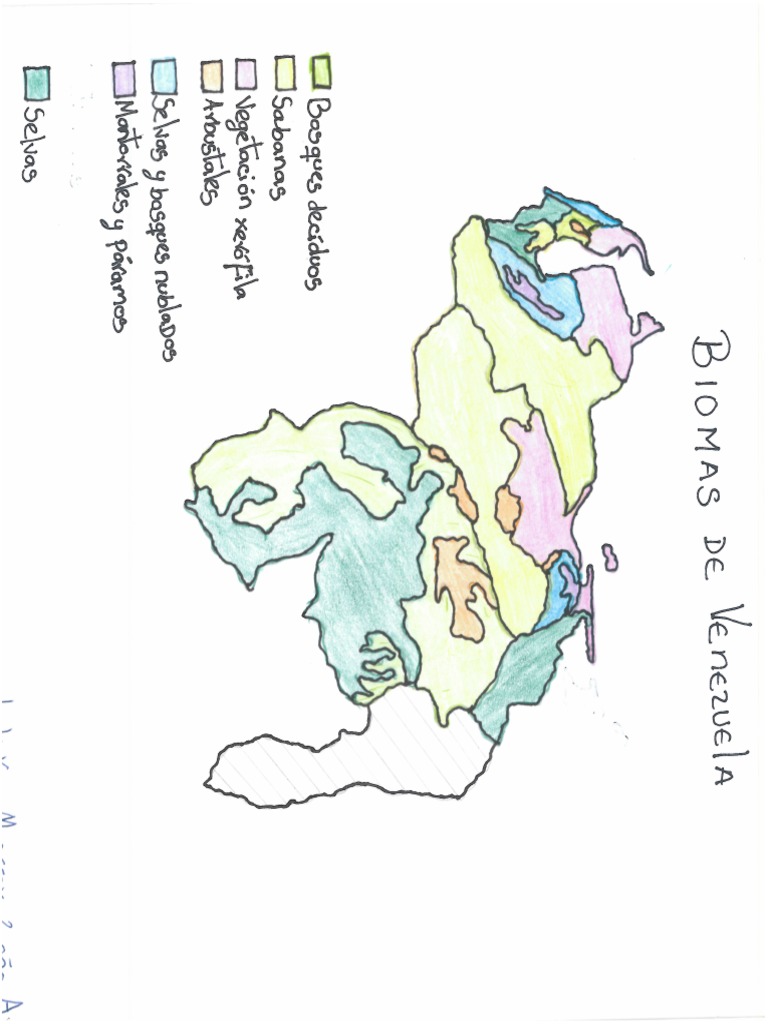 BIOMAS DE VENEZUELA
Bosques decíduos
Sabanas
Vegetación xerófila
Arbustales
Selvas y bosques nublados
Matorrales y páramos
Selvas